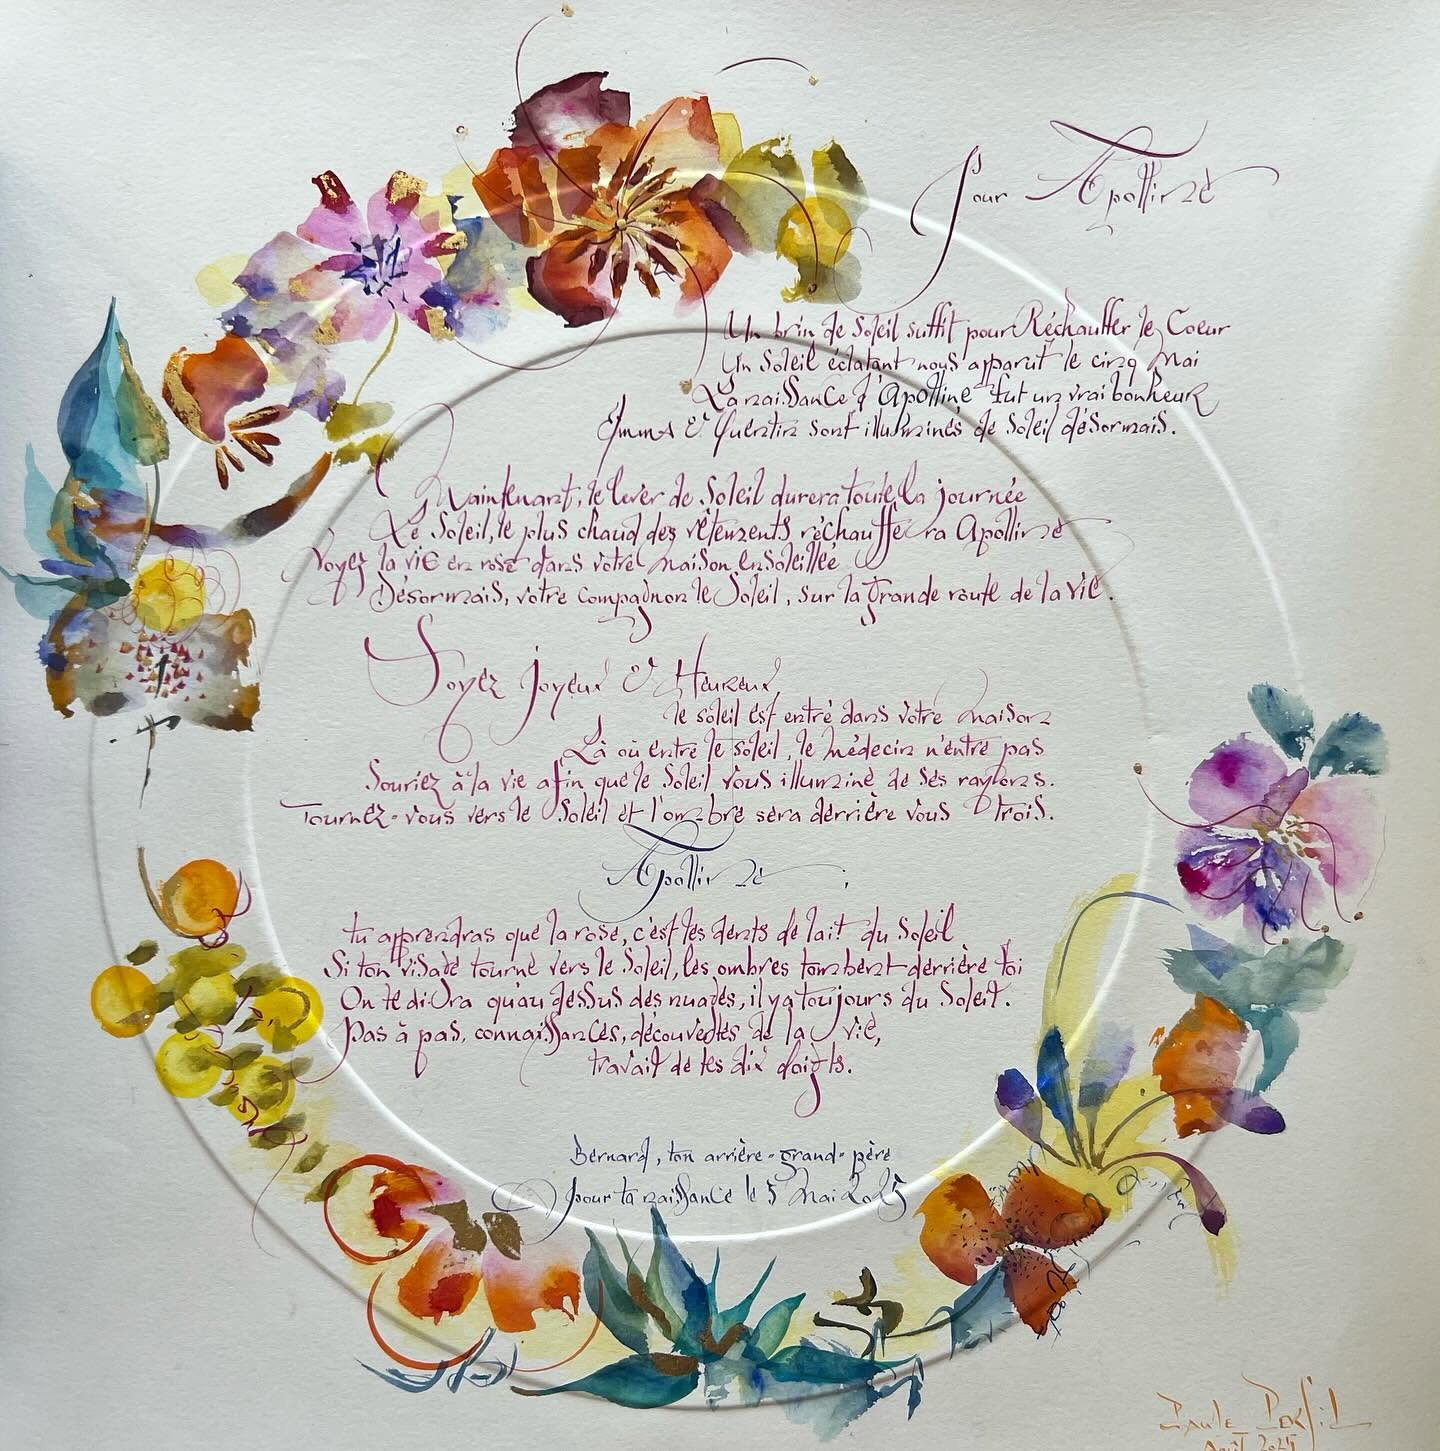 Pour Apolline
Un brin de Soleil suffit pour Réchauffer le Coeur
Un Soleil éclatant nous apparut le cinq Mai
La naissance d'Apolline fut un vrai bonheur
Emma & Quentin sont illuminés de Soleil désormais.
Maintenant, le lever de Soleil durera toute la journée
Le Soleil, le plus chaud des vêtements réchauffera Apolline
Voyez la vie en rose dans votre maison ensoleillée
Désormais, votre compagnon le Soleil, sur la Grande route de la vie.
Soyez Joyeux & Heureux
le soleil est entré dans votre maison
Là où entre le soleil, le médecin n'entre pas
Souriez à la vie afin que le Soleil vous illumine de ses rayons.
Tournez-vous vers le Soleil et l'ombre sera derrière vous trois.
Apolline ;
tu apprendras que la rose, c'est les dents de lait du Soleil
Si ton visage tourne vers le Soleil, les ombres tombent derrière toi
On te dira qu'au dessus des nuages, il y a toujours du Soleil.
Pas à pas, connaissances, découvertes de la vie,
travail de tes dix doigts.
Bernard, ton arrière-grand-père
pour ta naissance le 5 Mai 2025
Paule Persil
Août 2025